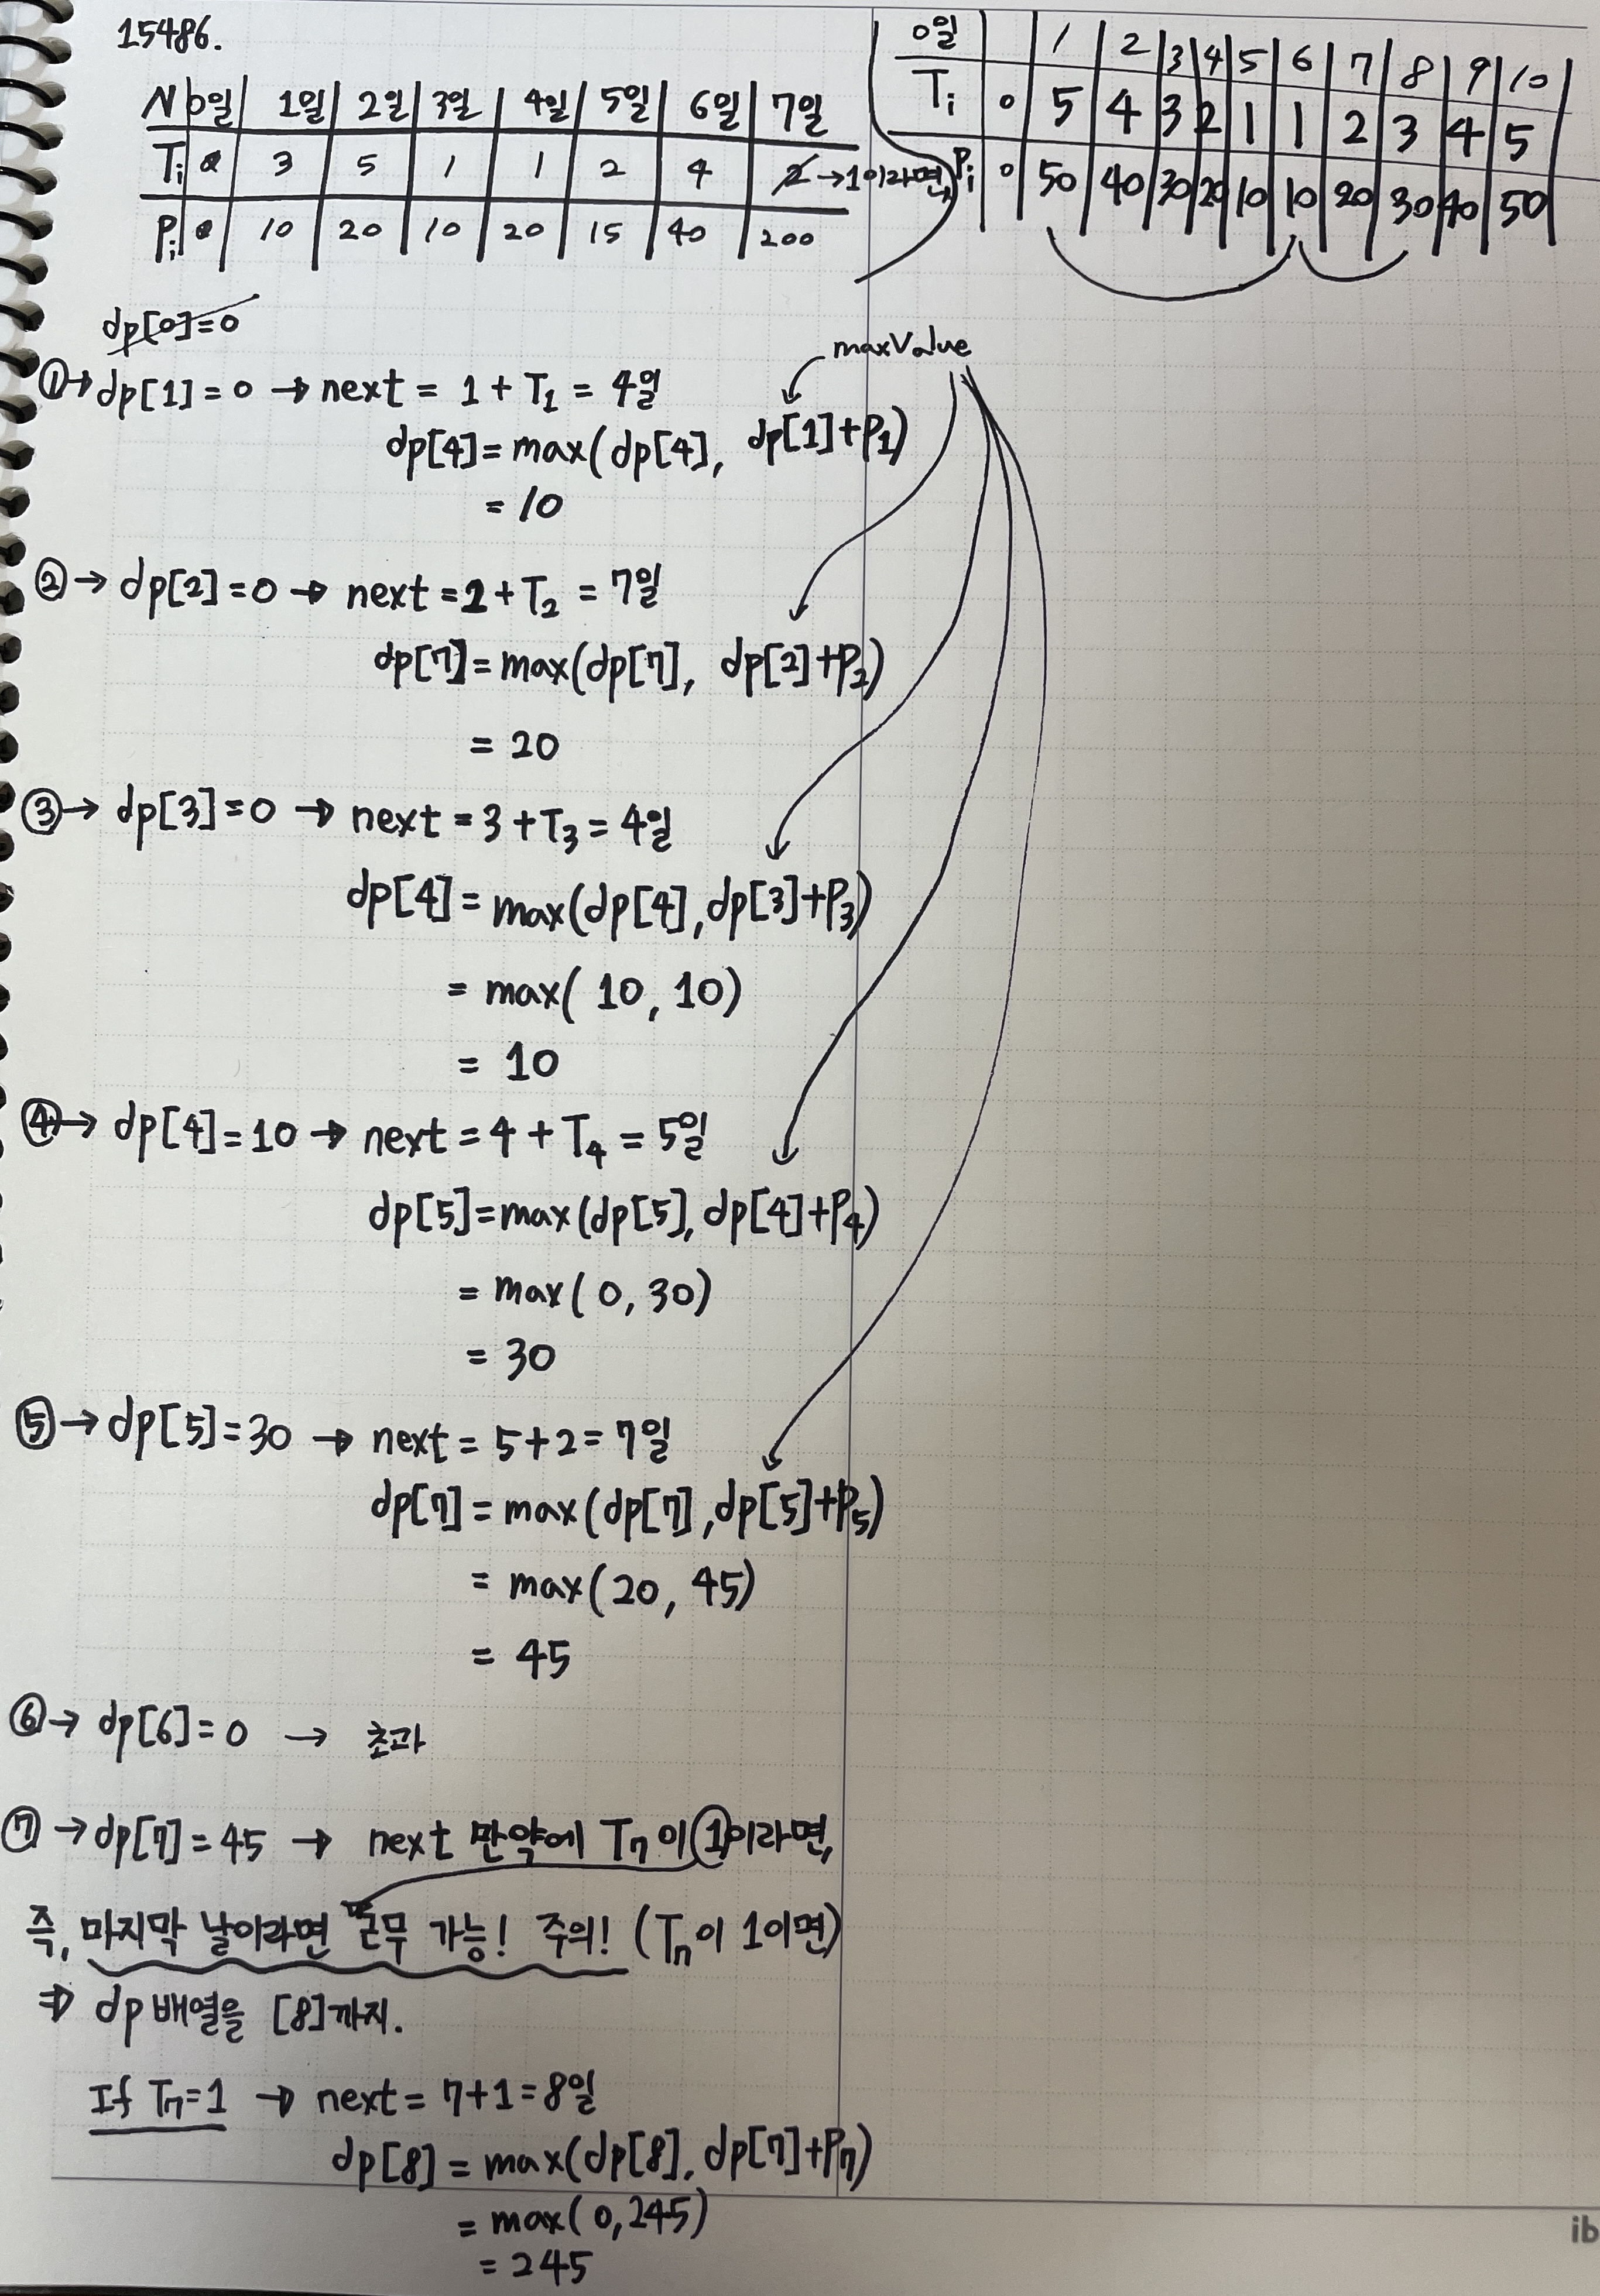 15486.
N 0일 1일 2일 3일 4일 5일 6일 7일
Ti 0 3 5 1 1 2 4 2 → 1이라면,
Pi 0 10 20 10 20 15 40 200
0일 1 2 3 4 5 6 7 8 9 10
Ti 0 5 4 3 2 1 1 2 3 4 5
Pi 0 50 40 30 20 10 10 20 30 40 50
dp[0]=0
maxValue
① → dp[1] = 0 → next = 1 + T1 = 4일
dp[4] = max(dp[4], dp[1]+P1)
= 10
② → dp[2] = 0 → next = 2 + T2 = 7일
dp[7] = max(dp[7], dp[2]+P2)
= 20
③ → dp[3] = 0 → next = 3 + T3 = 4일
dp[4] = max(dp[4], dp[3]+P3)
= max( 10, 10)
= 10
④ → dp[4] = 10 → next = 4 + T4 = 5일
dp[5] = max(dp[5], dp[4]+P4)
= max( 0, 30)
= 30
⑤ → dp[5] = 30 → next = 5+2 = 7일
dp[7] = max(dp[7], dp[5]+P5)
= max(20, 45)
= 45
⑥ → dp[6] = 0 → 초과
⑦ → dp[7] = 45 → next 만약에 T7이 1이라면,
즉, 마지막 날이라면 근무 가능! 주의! (Tn이 1이면)
⇒ dp 배열을 [8]까지.
If T7=1 → next = 7+1 = 8일
dp[8] = max(dp[8], dp[7]+P7)
= max( 0, 245)
= 245
ib